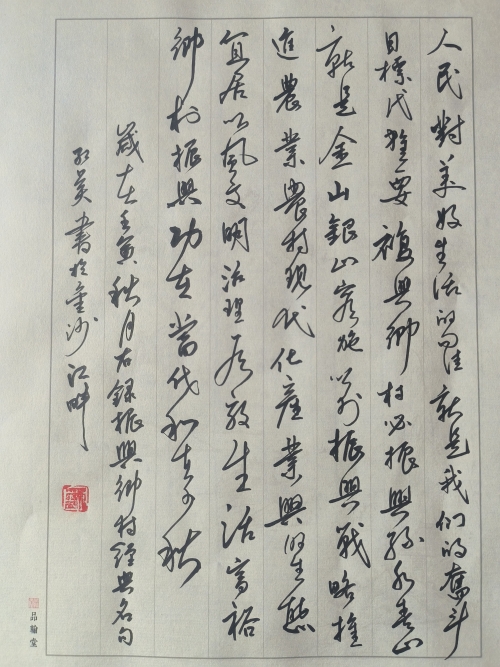 人民對美好生活的就是我们的奮斗
目標民族要復興鄉村必振興綠水青山
就是金山銀山實施振興戰略推
進農業農村現代化產業興旺生態
宜居鄉風文明治理有效生活富裕
鄉村振興功在當代利在千秋
歲在壬寅秋月右録振興鄉村經典名句
英書於金沙江畔
品翰堂